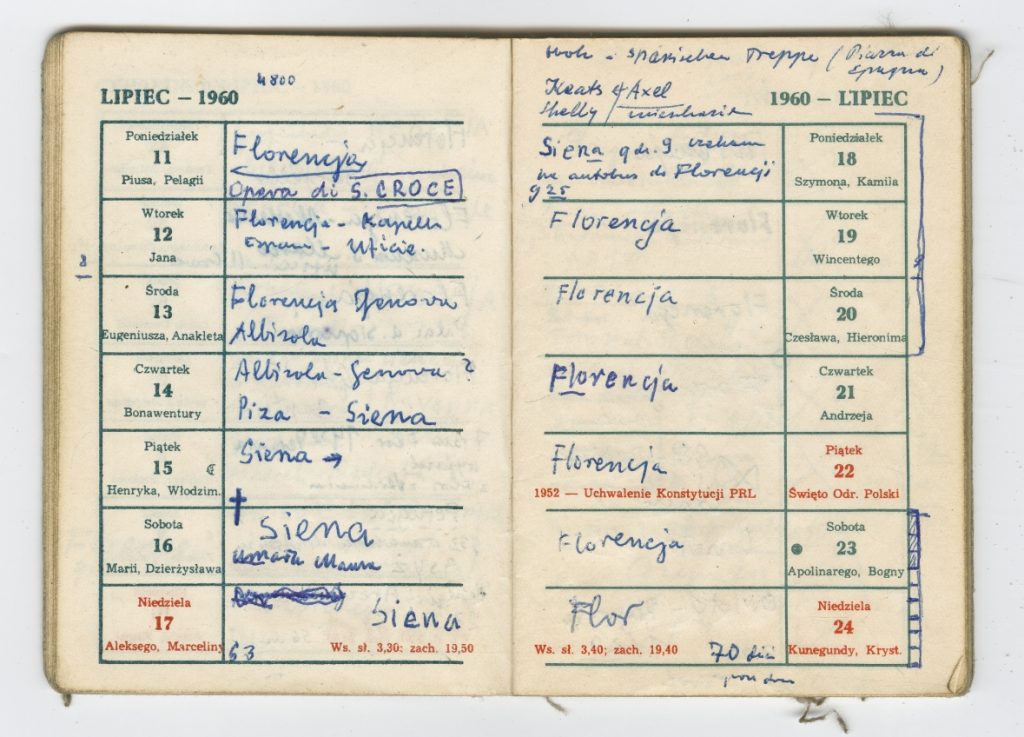 4800
LIPIEC – 1960
Poniedziałek
11
Piusa, Pelagii
Florencja
Opera di S. CROCE
Wtorek
12
Jana
Florencja - Kapella
Uficię.
8
Środa
13
Eugeniusza, Anakleta
Florencja Genova
Albisola
Czwartek
14
Bonawentury
Albisola - Genova ?
Piza - Siena
Piątek
15
Henryka, Włodzim.
Siena →
Sobota
16
Marii, Dzierżysława
Siena
umarła Mama
Niedziela
17
Aleksego, Marceliny
Siena
63
Ws. sł. 3,30; zach. 19,50
spanischen Treppe (Piazza di
Spagna)
Keats &
Shelly
Axel
mieszkanie
1960 – LIPIEC
Siena g dz. 9 czekam
na autobus do Florencji
9 25
Poniedziałek
18
Szymona, Kamila
Florencja
Wtorek
19
Wincentego
Florencja
Środa
20
Czesława, Hieronima
Florencja
Czwartek
21
Andrzeja
Florencja
1952 — Uchwalenie Konstytucji PRL
Piątek
22
Święto Odr. Polski
Florencja
Sobota
23
Apolinarego, Bogny
Flor
Ws. sł. 3,40; zach. 19,40
70 dni
Niedziela
24
Kunegundy, Kryst.